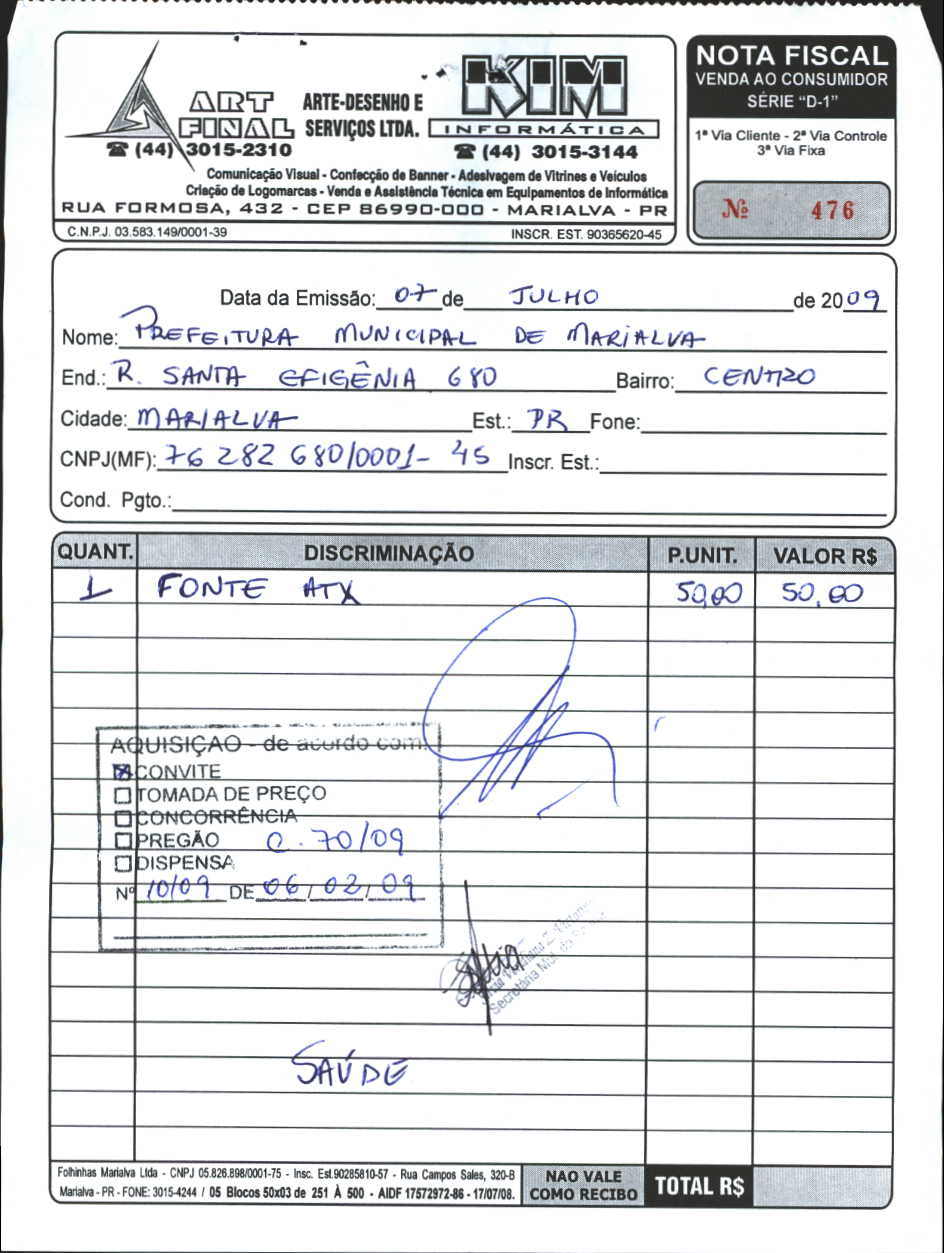 ART FINAL ARTE-DESENHO E SERVIÇOS LTDA. KIM INFORMÁTICA
(44) 3015-2310 (44) 3015-3144
Comunicação Visual - Confecção de Banner - Adesivagem de Vitrines e Veículos
Criação de Logomarcas - Venda e Assistência Técnica em Equipamentos de Informática
RUA FORMOSA, 432 - CEP 86990-000 - MARIALVA - PR
C.N.P.J. 03.583.149/0001-39 INSCR. EST. 90365620-45
NOTA FISCAL
VENDA AO CONSUMIDOR
SÉRIE "D-1"
1ª Via Cliente - 2ª Via Controle
3ª Via Fixa
Nº 476
Data da Emissão: 07 de JULHO de 2009
Nome: PREFEITURA MUNICIPAL DE MARIALVA
End.: R. SANTA EFIGÊNIA 680 Bairro: CENTRO
Cidade: MARIALVA Est.: PR Fone:
CNPJ(MF): 76 282 680/0001-45 Inscr. Est.:
Cond. Pgto.:
QUANT. DISCRIMINAÇÃO P.UNIT. VALOR R$
1 FONTE ATX 50,00 50,00
AQUISIÇAO - de acordo com:
CONVITE
TOMADA DE PREÇO
CONCORRÊNCIA
PREGÃO C. 70/09
DISPENSA
Nº 10/09 DE 06/02/09
Secretária Mun. de
SAÚDE
Folhinhas Marialva Ltda - CNPJ 05.826.898/0001-75 - Insc. Est.90285810-57 - Rua Campos Sales, 320-B
Marialva - PR - FONE: 3015-4244 / 05 Blocos 50x03 de 251 À 500 - AIDF 17572972-86 - 17/07/08.
NAO VALE
COMO RECIBO
TOTAL R$